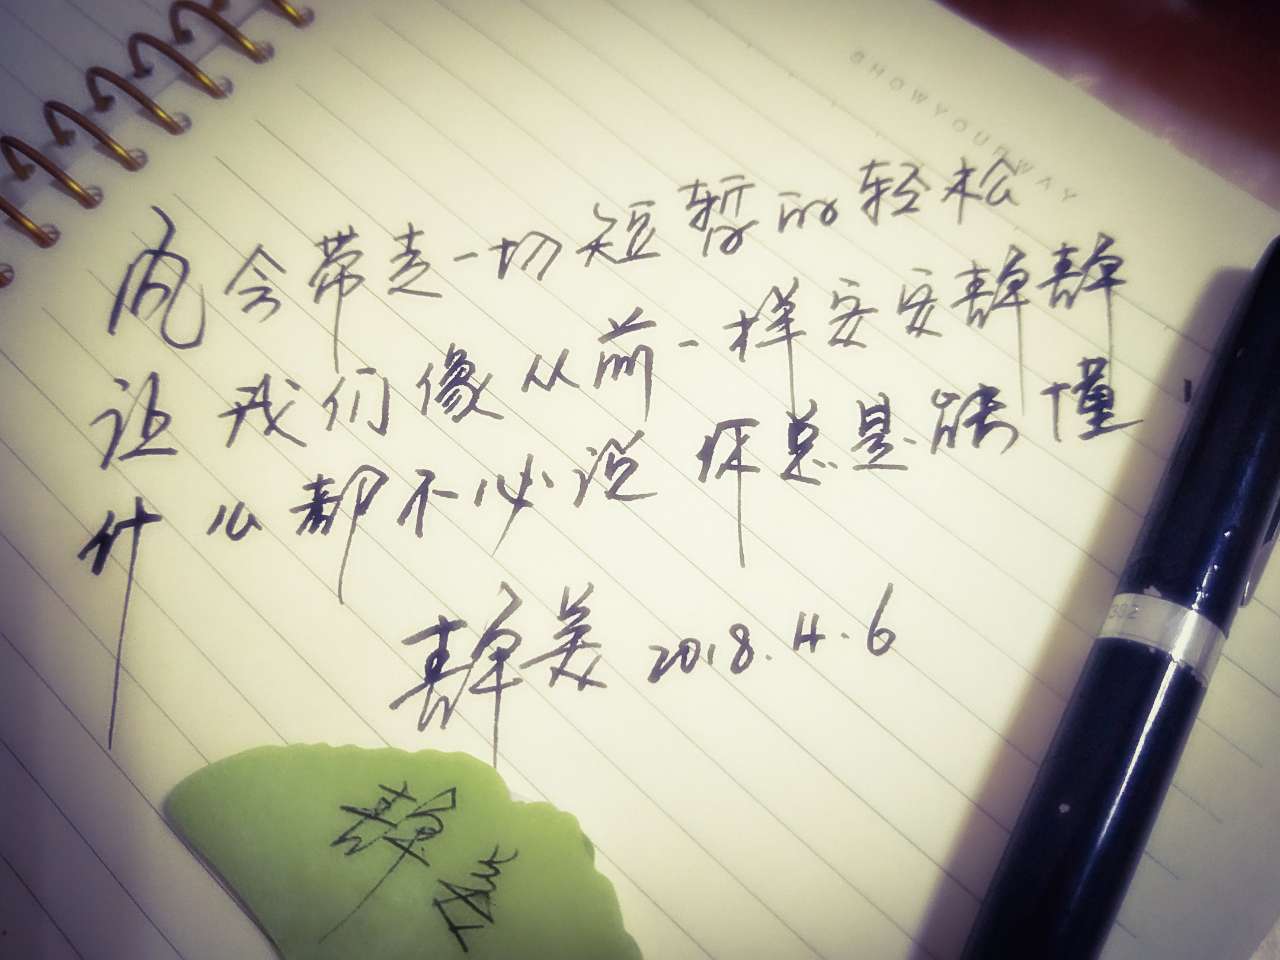 SHOW YOUR WAY
风会带走一切短暂的轻松
让我们像从前一样安安静静
什么都不必说 你总是能懂
静美 2018.4.6
静美
392